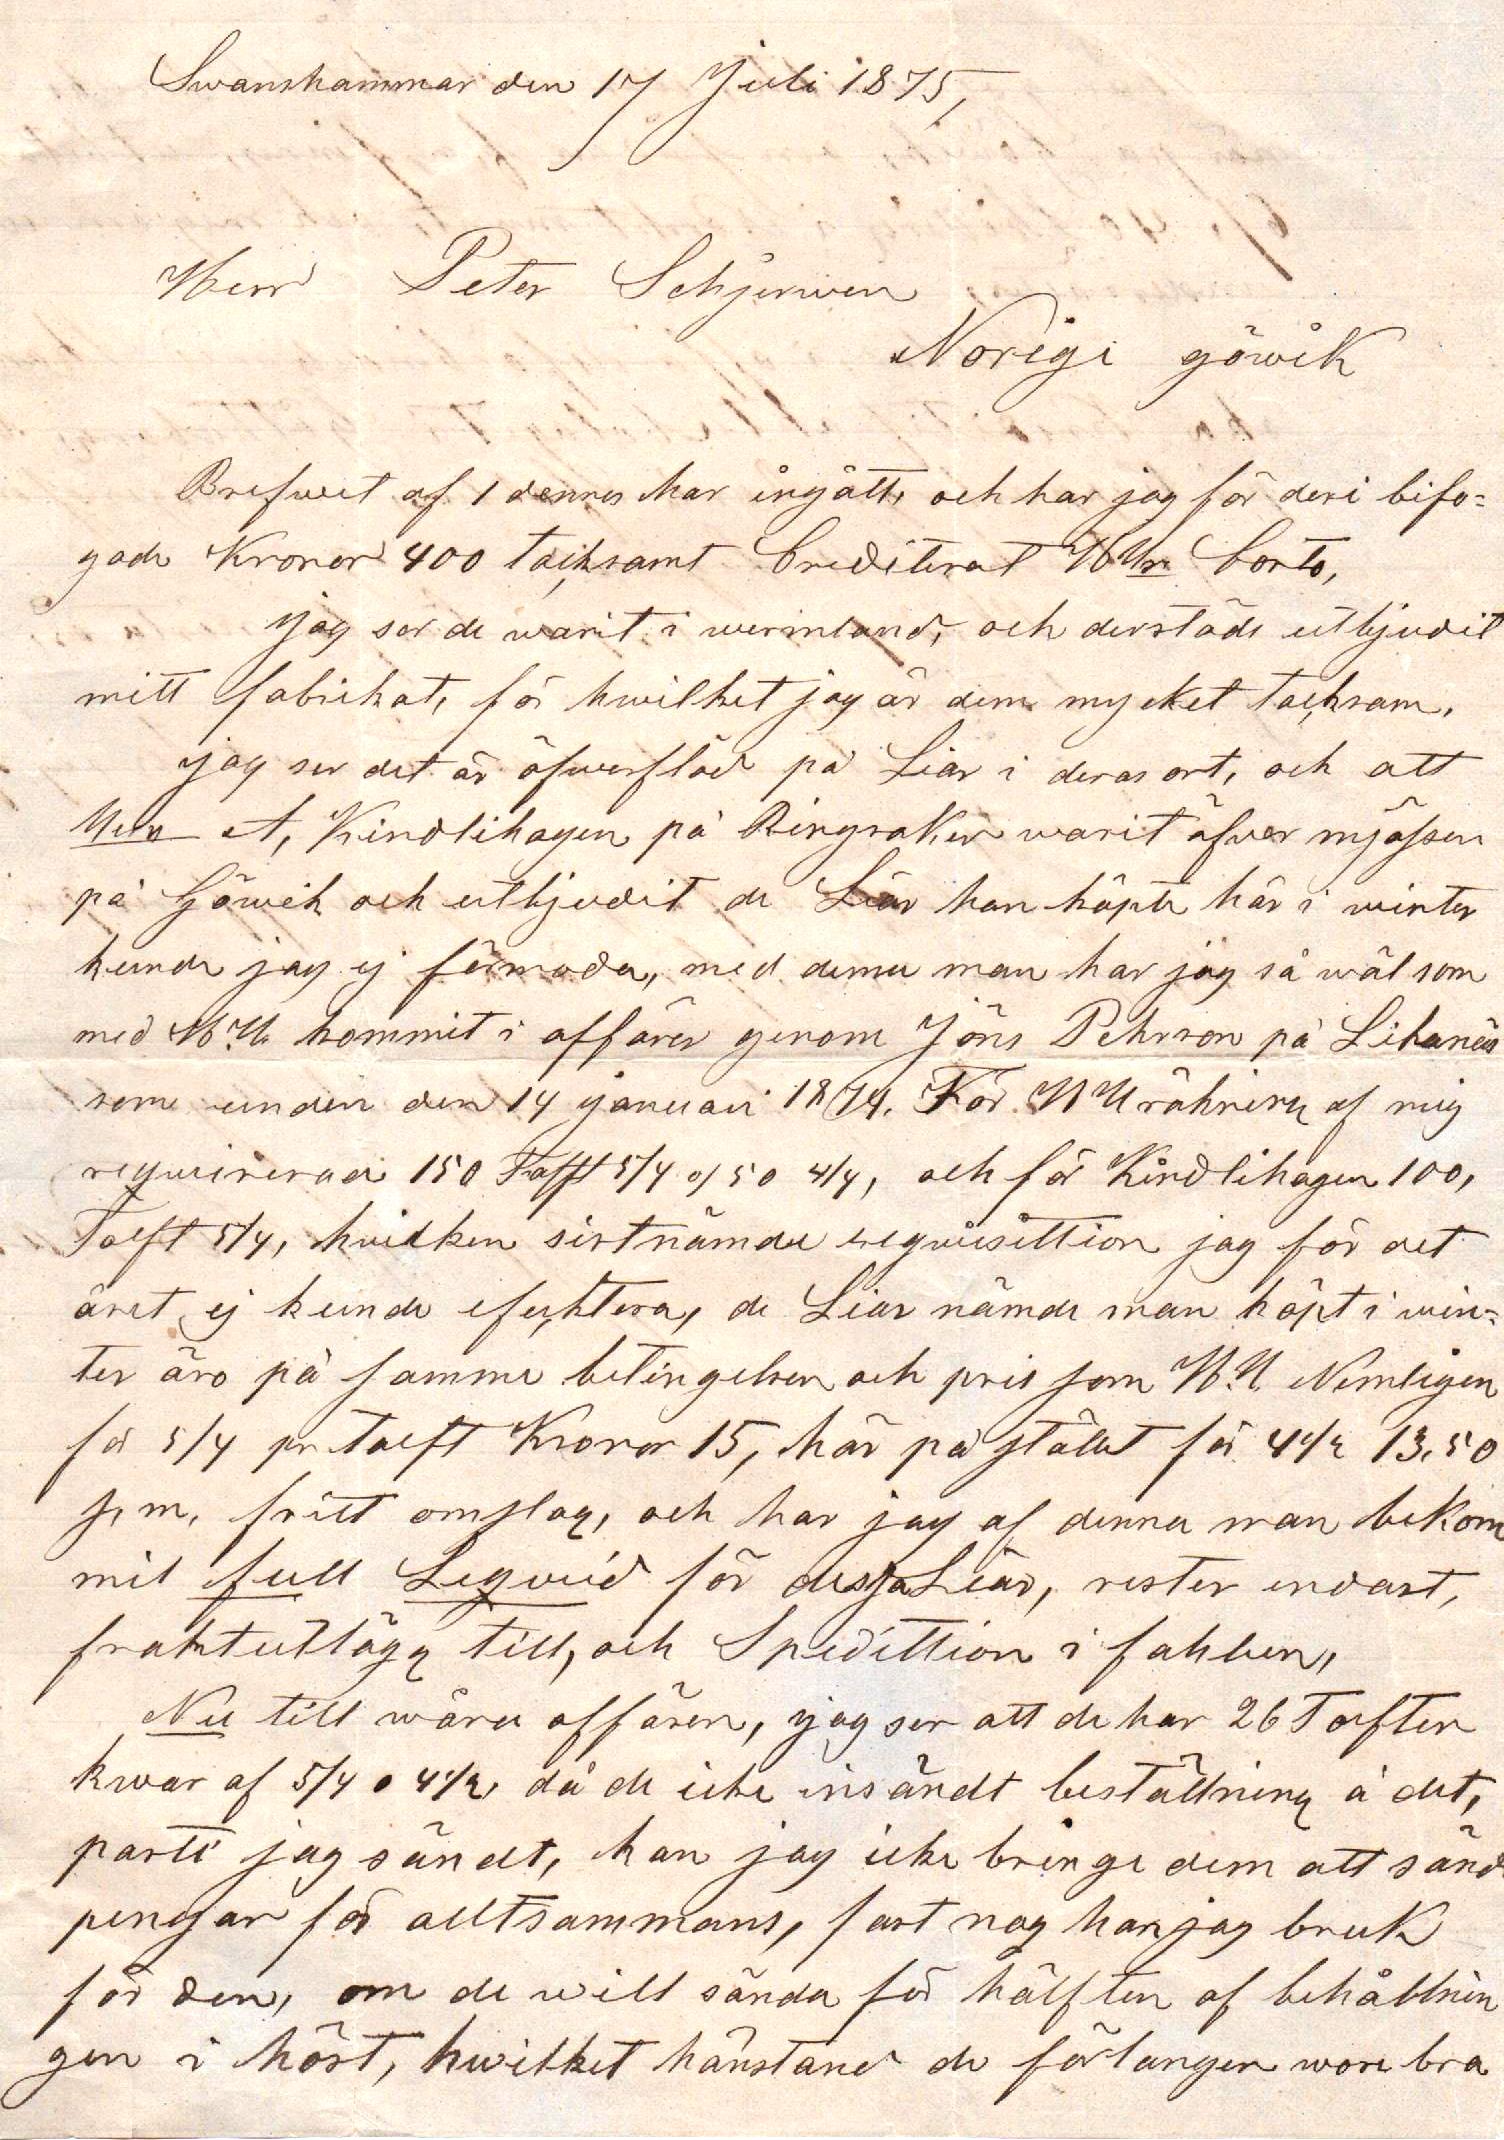 Swanshammar den 17 Juli 1875,
Herr Peter Schjerwen
Norigi göwik
Brefwet af 1 dennes har ingått, och har jag för deri bifo=
gade Kronor 400 tacksamt Crediterat Conto,
jag ser de warit i wermland, och derstäde utbjudit
mitt fabrikat, för hwilket jag är dem mycket tacksam,
jag ser det är öfwerflöd på Liar i deras ort, och att
Herr A, Kindlihagen på Ringsaker warit öfwer mjössen
på Göwik och utbjudit de Liar han köpte här i winter
kunde jag ej förmoda, med denna man har jag så wäl som
med kommit i affärer genom Jöns Pehrson på Likanäs
som unden den 14 januari 1874. För räkning af mig
requirerade 150 Tolft 5/4 o 50 4/4, och för Kindlihagen 100,
Tolft 5/4, hwilken sistnämde requisittion jag för det
året ej kunde efecktera, de Liar nämde man köpt i win=
ter äro på samma betingelsen och pris som Nemligen
för 5/4 pr tolft Kronor 15, här på stället för 4 1/2 13,50
s, m, fritt omslag, och har jag af denna man bekom
mit full Leqvid för dessa Liar, rester endast,
fraktutlägg till, och Spedittion i fahlun,
Nu till wåra affären, jag ser att de har 26 Tolften
kwar af 5/4 o 4 1/2, då de icke insändt beställning å det,
parti jag sändt, kan jag icke bringe dem att sända
pengar för alltsammans, fast nog har jag bruk
för den, om de will sända för hälften af behållnin
gen i höst, hwilket hänstand de förlangen wore bra